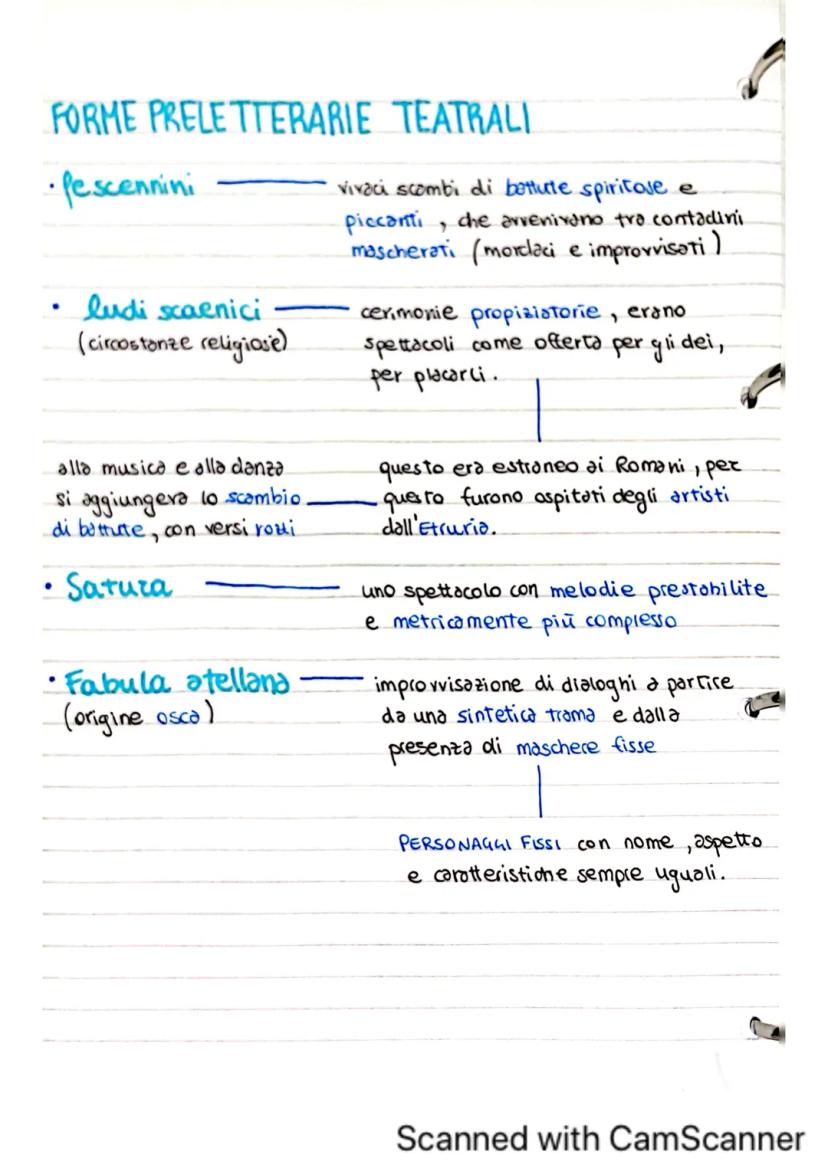 FORME PRELETTERARIE TEATRALI
• fescennini
vivaci scambi di battute spiritose e
piccanti, che avvenivano tra contadini
mascherati (mordaci e improvvisati)
• ludi scaenici
(circostanze religiose)
cerimonie propiziatorie, erano
spettacoli come offerta per gli dei,
per placarli.
questo era estraneo ai Romani, per
questo furono ospitati degli artisti
dall'Etruria.
alla musica e alla danza
si aggiungeva lo scambio
di battute, con versi rozzi
• Satura
uno spettacolo con melodie prestabilite
e metricamente più complesso
• Fabula atellana
(origine osca)
improvvisazione di dialoghi a partire
da una sintetica trama e dalla
presenza di maschere fisse
PERSONAGGI FISSI con nome, aspetto
e caratteristiche sempre uguali.
Scanned with CamScanner